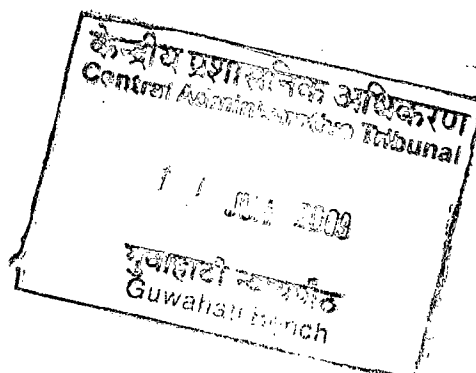 केन्द्रीय प्रशासनिक अधिकरण
Central Administrative Tribunal
2009
गुवाहाटी न्यायपीठ
Guwahati Bench